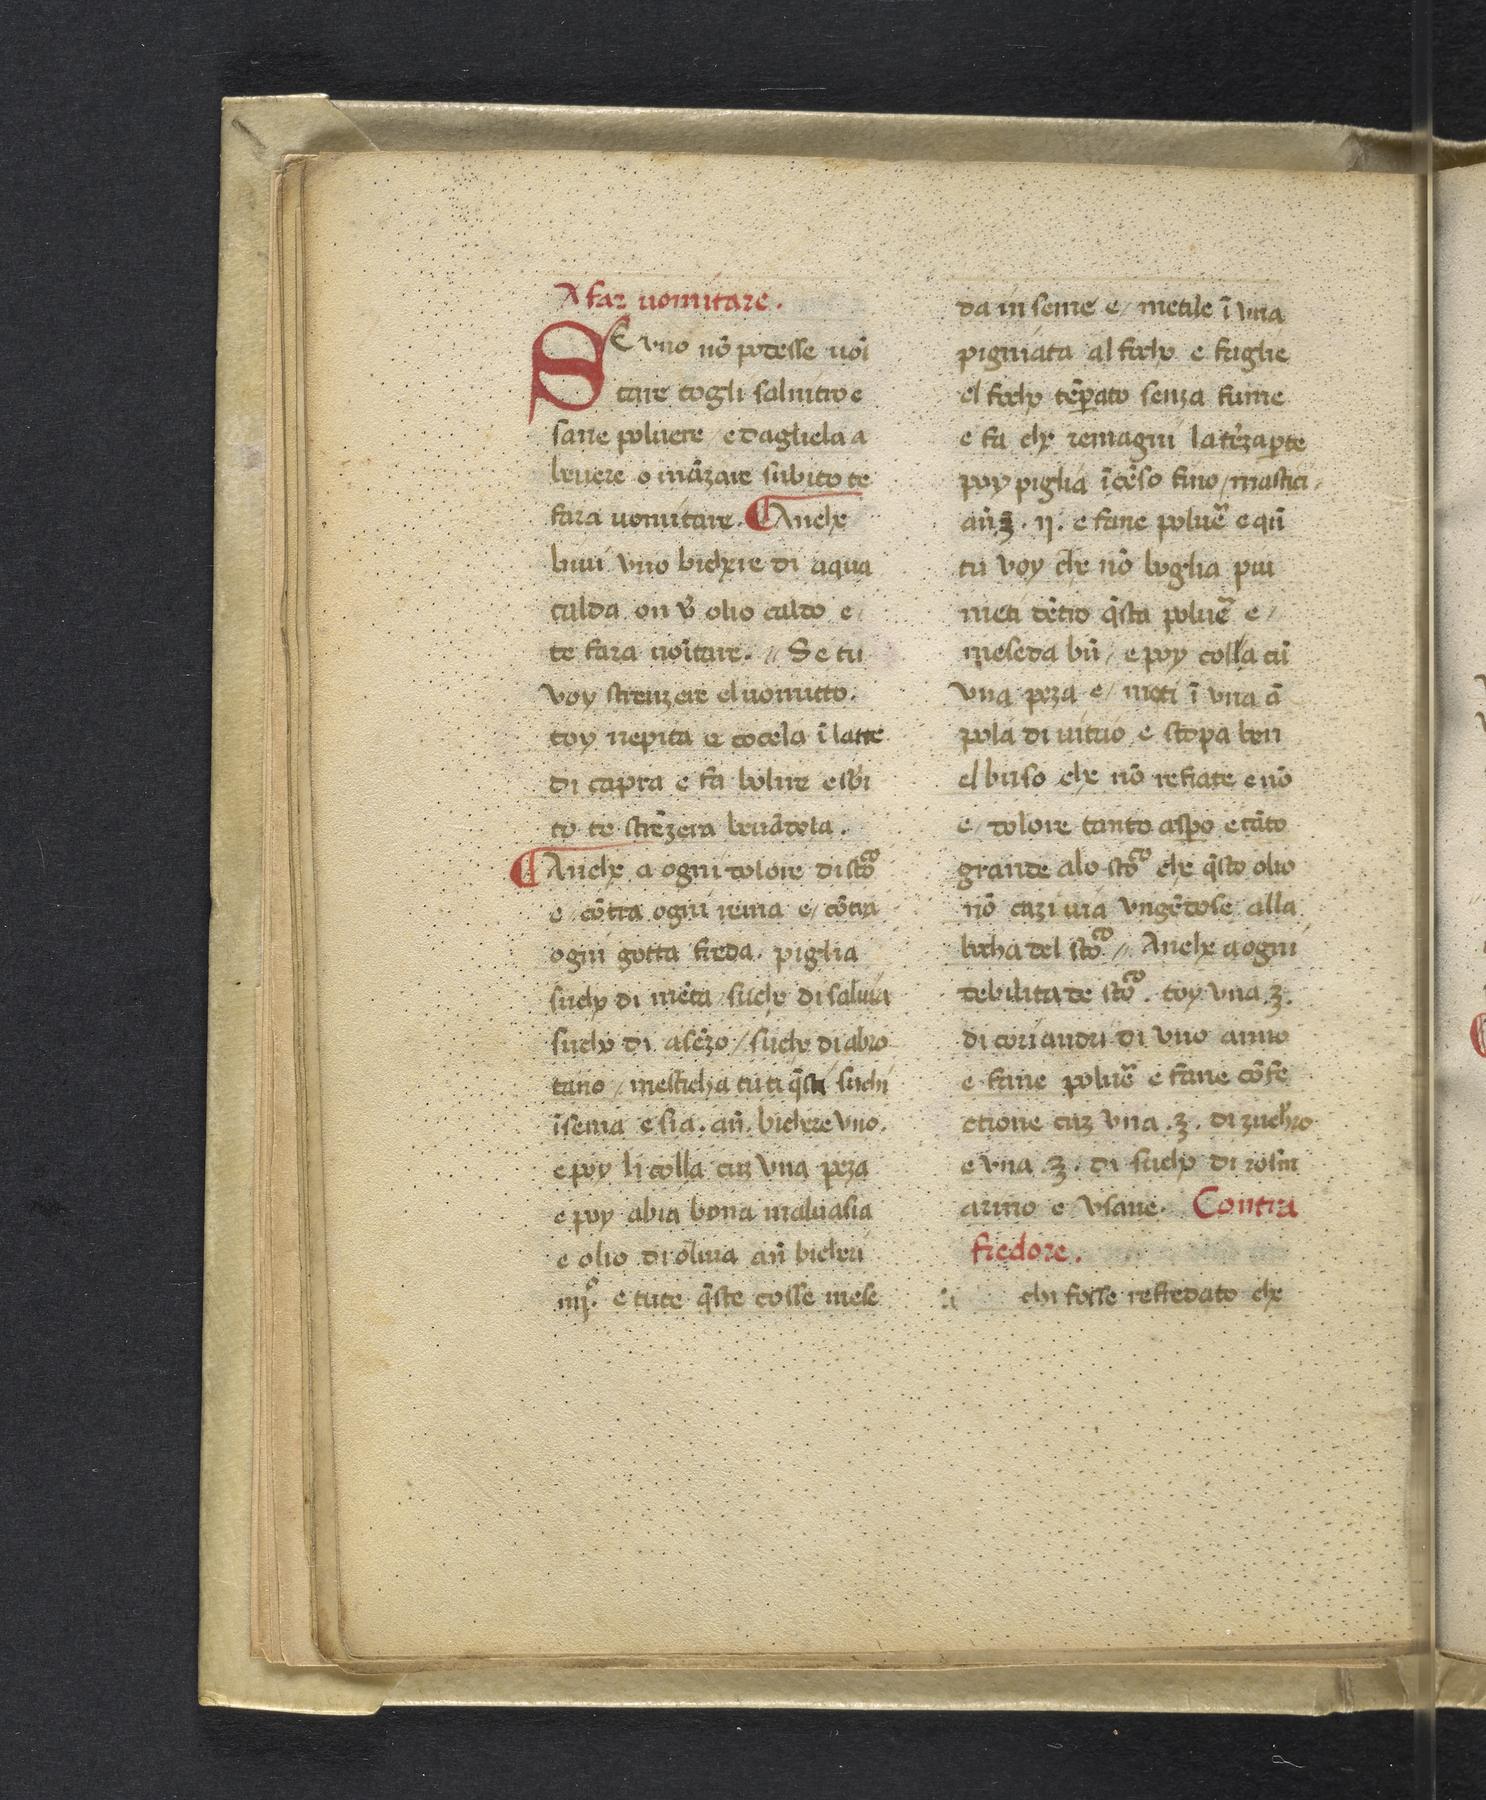 A far uomitare.
SE vno nō potesse uoī
tare togli salnitro e
fane poluere / e dagliela a
beuere o māzare subito te
fara uomitare. ¶ Anche
biuui vno bichiere di aqua
calda on v̄ olio caldo e /
te fara uoītare. // Se tu
voy strenzere el uomitto.
toy nepita e cocela ī latte
di capra e fa bolire e sbī
to te strēzera beuādola.
¶ Anche a ogni dolore di stōco
e / cōtra ogni rema e / cōtra
ogni gotta freda. piglia
sucho di mēta / sucho di saluia
sucho di asēzo / sucho di abro
tano / mesticha tuti q̄sti suchi
īsema e sia. añ. bichere vno.
e poy li colla cuz vna peza
e poy abia bona maluasia
e olio di oliua añ bicheri
iiijo. e tute q̄ste cosse mese
da in seme e / metile ī vna
pigniata al focho e faglie
el focho tēperato senza fume
e fa che remagni la tēza parte
poy piglia īcēso fino / mastici /
añ ʒ. ij. e fane poluē e qñ
tu voy che nō boglia piu
meti dētro q̄sta poluē e /
meseda bñ / e poy colla cū
vna peza e / meti ī vna ā
pola di uitrio e stopa ben
el buso che nō refiate e nō
e / dolore tanto aspo e tāto
grande alo stōco che q̄sto olio
nō cazi uia vngēdose alla
bocha del stōco // Anche a ogni
debilita de stōco. toy vna ʒ.
di coriandri di vno anno
e fane poluē e fane cōfe
ctione cuz vna .ʒ. di zucharo
e vna .ʒ. di sucho di rosm
arino e / vsane. Contra
fredore.
chi fosse refredato che